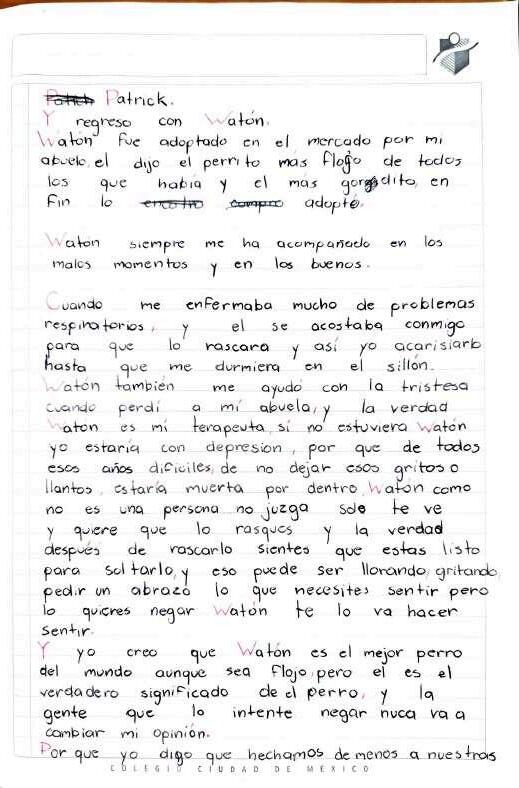 Patrick.
Y regreso con Watón.
Watón fue adoptado en el mercado por mi
abuelo, el dijo el perrito mas flojo de todos
los que habia y el más gordito, en
fin lo encotro compro adopté.
Watón siempre me ha acompañado en los
malos momentos y en los buenos.
Cuando me enfermaba mucho de problemas
respiratorios, y el se acostaba conmigo
para que lo rascara y así yo acarisiarlo
hasta que me durmiera en el sillón.
Watón también me ayudó con la tristesa
cuando perdí a mi abuela, y la verdad
Waton es mi terapeuta, si no estuviera Watón
yo estaría con depresion, por que de todos
esos años dificiles, de no dejar esos gritos o
llantos, estaría muerta por dentro, Watón como
no es una persona no juzga solo te ve
y quiere que lo rasques y la verdad
después de rascarlo sientes que estas listo
para soltarlo, y eso puede ser llorando, gritando,
pedir un abrazo lo que necesites sentir pero
lo quieres negar Watón te lo va hacer
sentir.
Y yo creo que Watón es el mejor perro
del mundo aunque sea flojo, pero el es el
verdadero significado de el perro, y la
gente que lo intente negar nuca va a
cambiar mi opinión.
Por que yo digo que hechamos de menos a nuestras
COLEGIO CIUDAD DE MEXICO